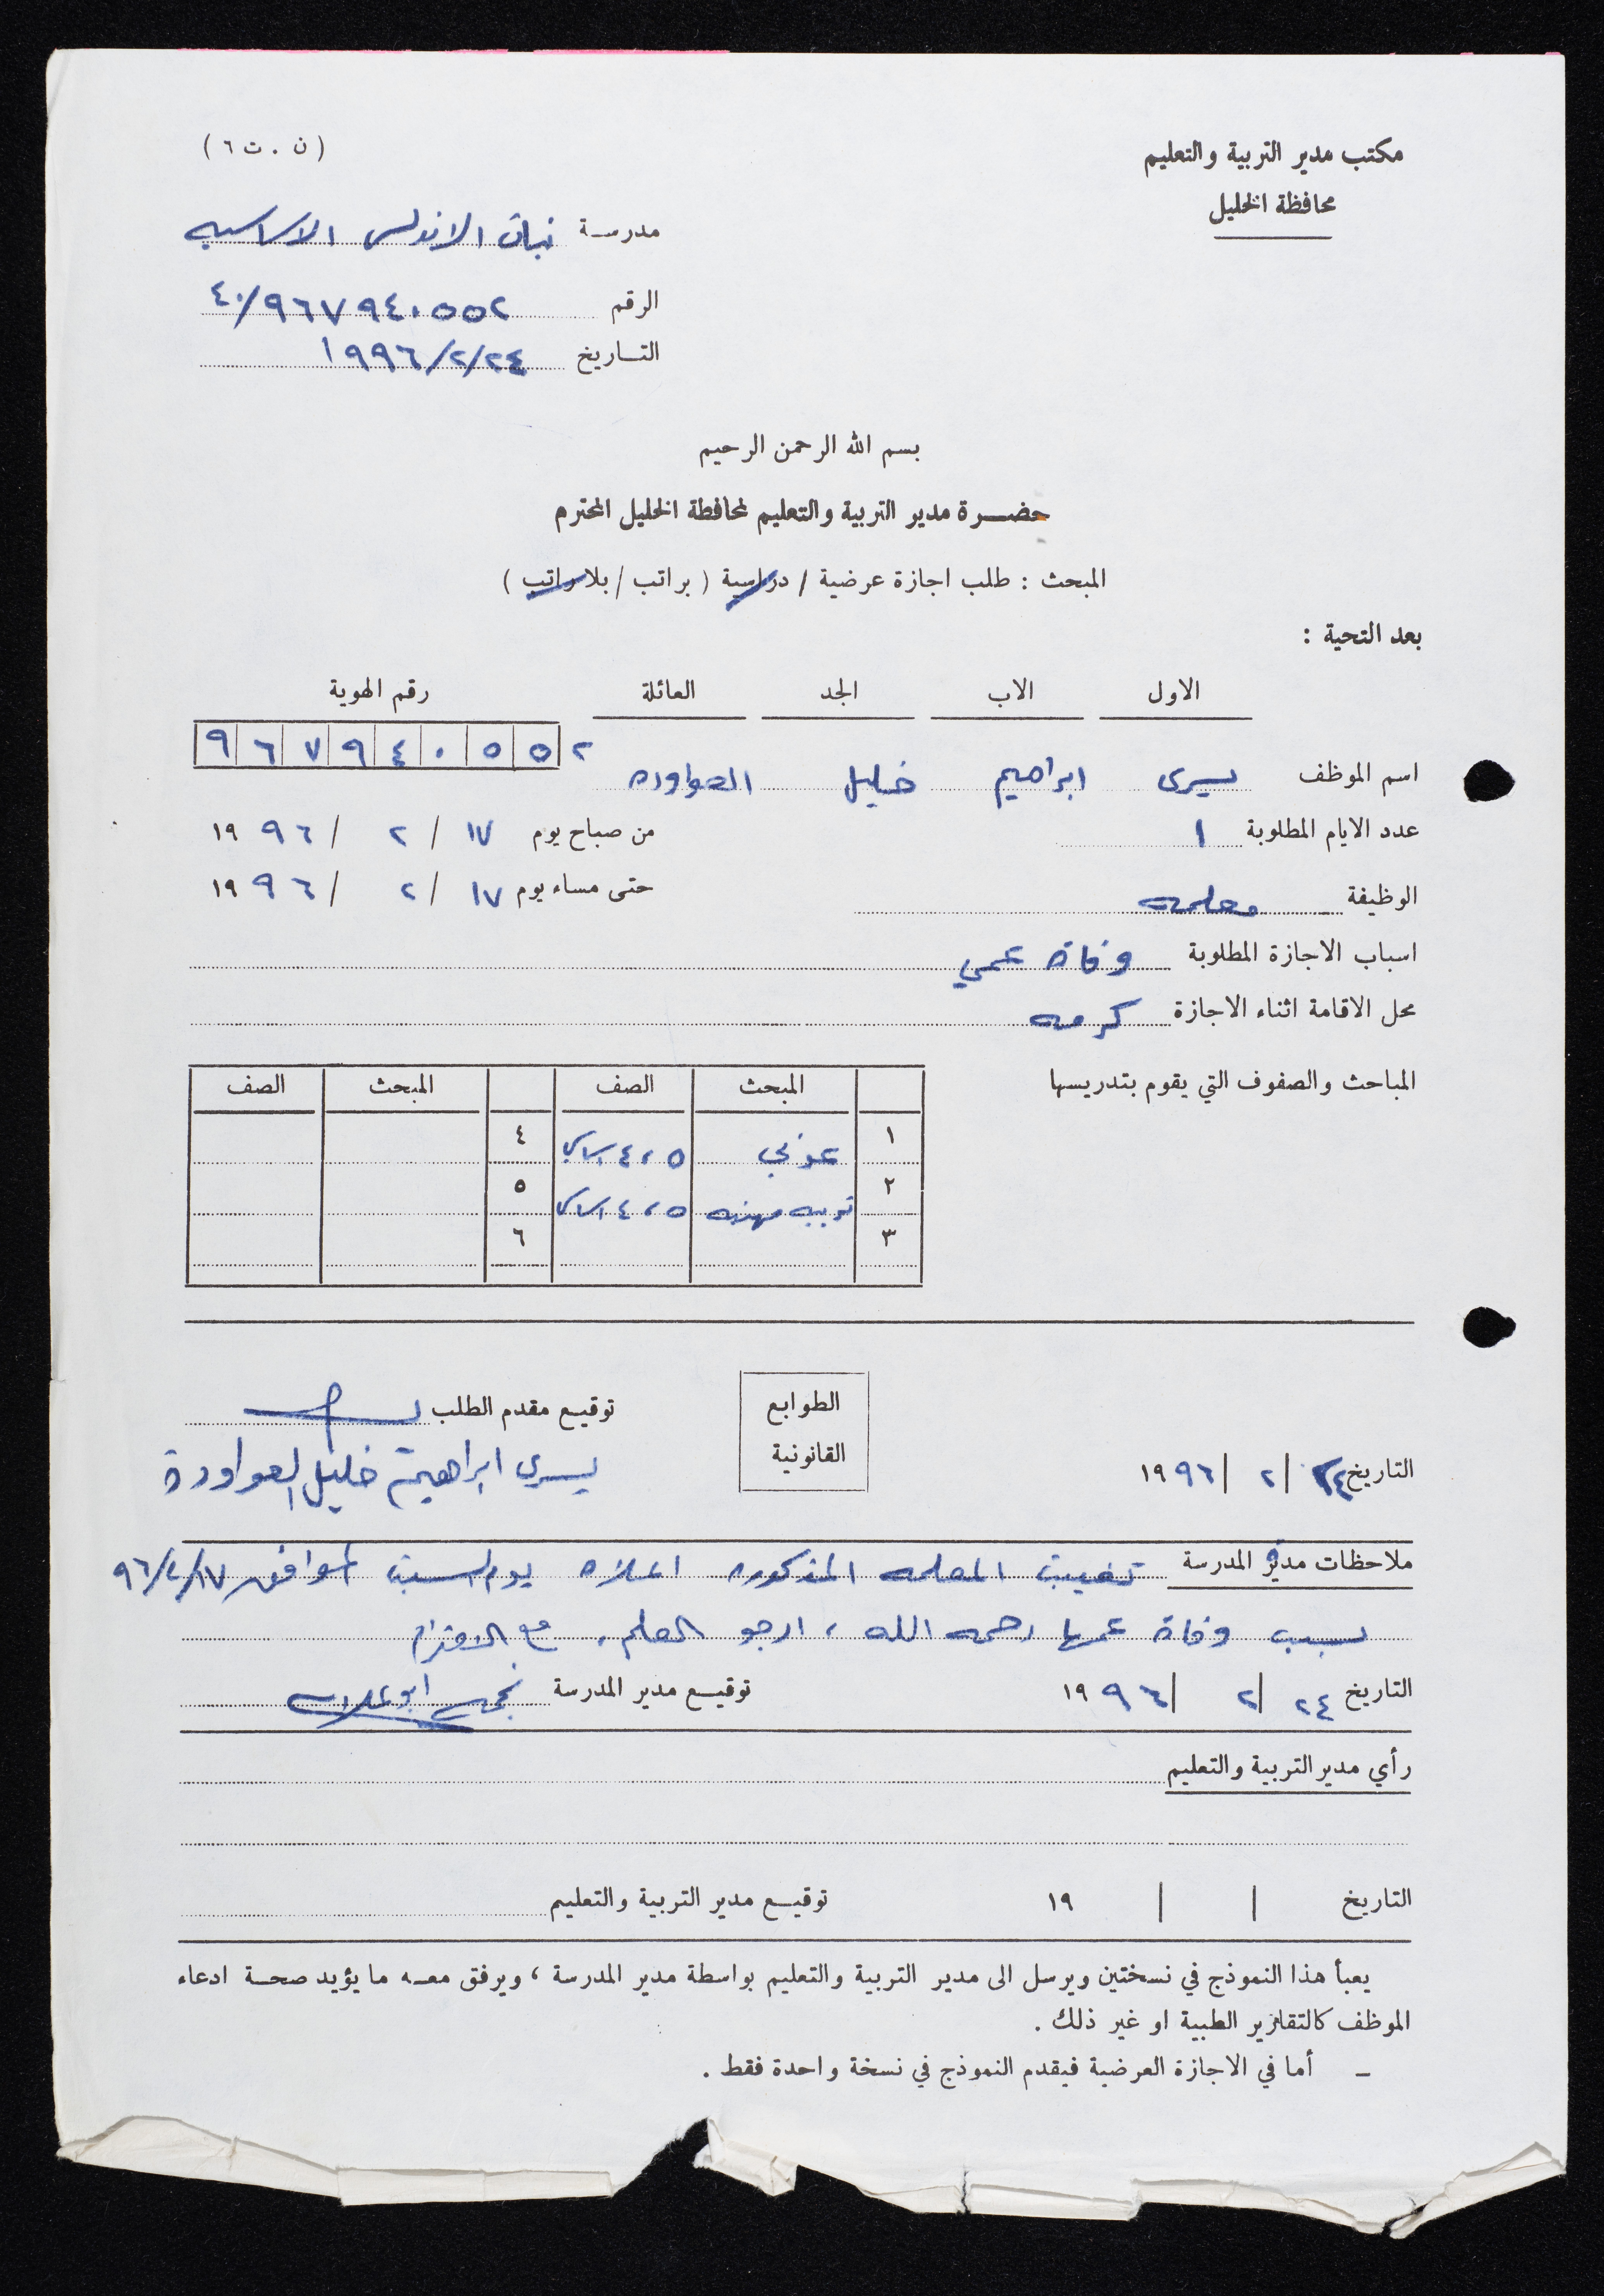 مكتب مدير التربية والتعليم
محافظة الخليل
(ن . ت ٦)
مدرسة بنات الاندلس الاساسيه
الرقم ٤٠/٩٦٧٩٤٠٥٥٢
التاريخ ٢٤/٢/١٩٩٦
بسم الله الرحمن الرحيم
حضرة مدير التربية والتعليم لمحافظة الخليل المحترم
المبحث : طلب اجازة عرضية / دراسية ( براتب / بلا راتب )
بعد التحية :
الاول الاب الجد العائلة رقم الهوية
٩٦٧٩٤٠٥٥٢
اسم الموظف يسرى ابراهيم خليل العواوده
عدد الايام المطلوبة ١ من صباح يوم ١٧ / ٢ / ١٩٩٦
الوظيفة معلمه حتى مساء يوم ١٧ / ٢ / ١٩٩٦
اسباب الاجازة المطلوبة وفاة عمي
محل الاقامة اثناء الاجازة كرمه
المباحث والصفوف التي يقوم بتدريسها
المبحث الصف المبحث الصف
١ عربي ٤،٥ اساسي ٤
٢ تربيه مهنيه ٤،٥ اساسي ٥
٣ ٦
الطوابع
القانونية
توقيع مقدم الطلب
يسرى ابراهيم خليل العواودة
التاريخ ٢٤ / ٢ / ١٩٩٦
ملاحظات مدير المدرسة تغيبت المعلمه المذكوره اعلاه يوم السبت الموافق ١٧/٢/٩٦
بسبب وفاة عمها رحمه الله ، ارجو العلم ، مع الاحترام
التاريخ ٢٤ / ٢ / ١٩٩٦ توقيع مدير المدرسة
رأي مدير التربية والتعليم
التاريخ / / ١٩ توقيع مدير التربية والتعليم
يعبأ هذا النموذج في نسختين ويرسل الى مدير التربية والتعليم بواسطة مدير المدرسة ، ويرفق معه ما يؤيد صحة ادعاء
الموظف كالتقارير الطبية او غير ذلك .
– أما في الاجازة العرضية فيقدم النموذج في نسخة واحدة فقط .